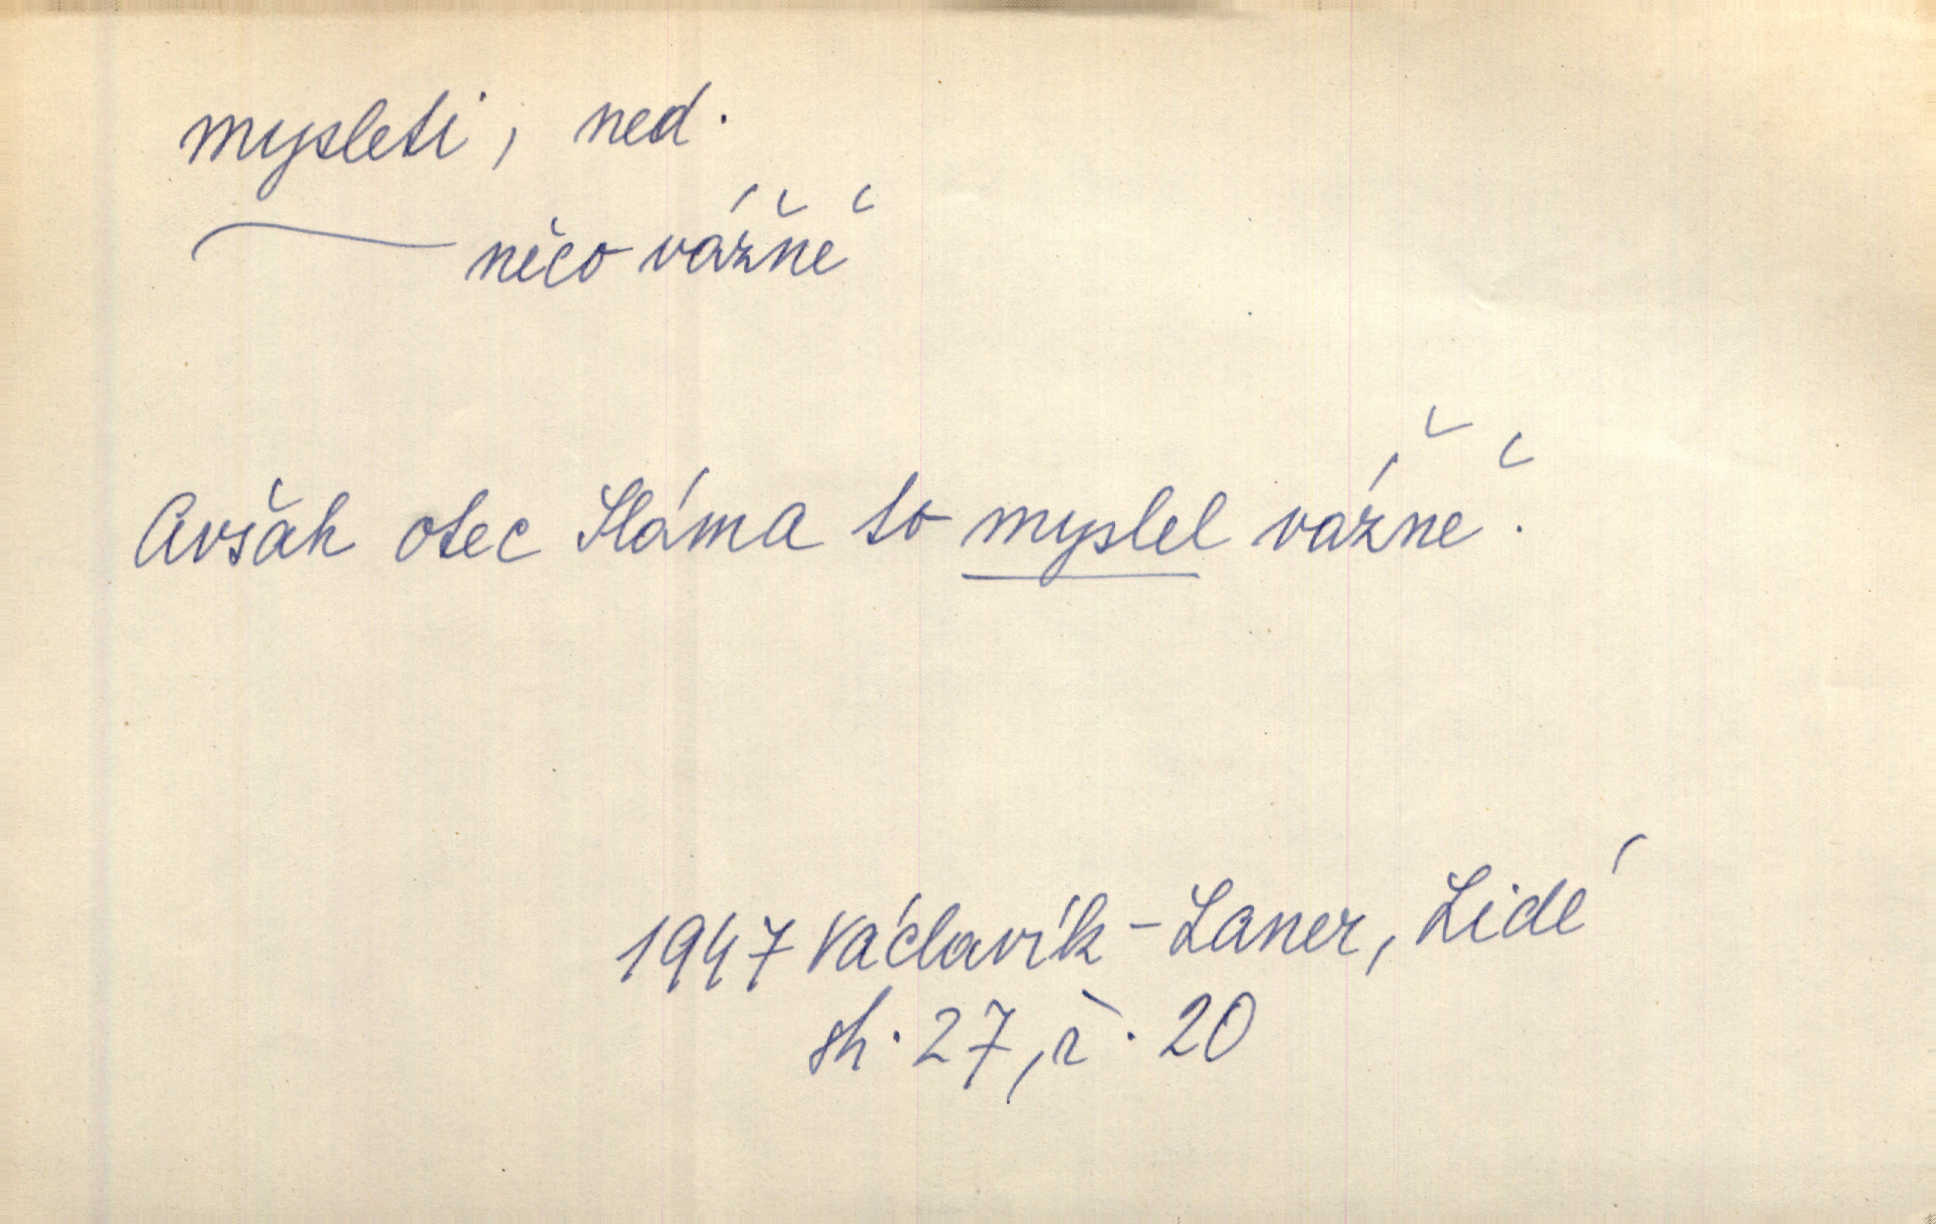 mysleti, ned.
— něco vážně
Avšak otec Sláma to myslel vážně.
1947 Václavík - Laner, Lidé
str. 27, ř. 20